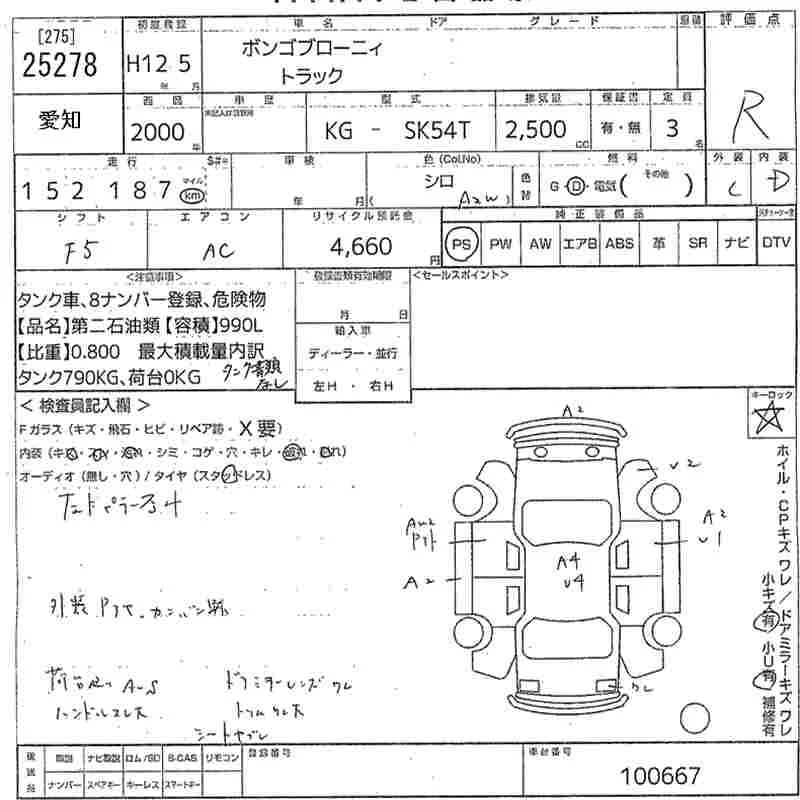 [275]
25278
初度登録
H12 5
年 月
車名 ドア グレード
ボンゴブローニィ
トラック
評価点
R
愛知
西暦
2000
年
車歴
型式
KG - SK54T
排気量
2,500
CC
保証書
有・無
定員
3
名
走行
152 187
マイル
km
車検
年 月
色 (Col.No)
シロ
A2W
色替
燃料
G・D・電気( その他 )
外装
C
内装
D
シフト
F5
エアコン
AC
リサイクル預託金
4,660
円
純正装備品
PS PW AW エアB ABS 革 SR ナビ DTV
<注意事項>
タンク車、8ナンバー登録、危険物
【品名】第二石油類【容積】990L
【比重】0.800 最大積載量内訳
タンク790KG、荷台0KG
タンク書類
なし
登録書類有効期限
月 日
輸入車
ディーラー・並行
左H ・ 右H
<セールスポイント>
< 検査員記入欄 >
Fガラス (キズ・飛石・ヒビ・リペア跡・X要)
オーディオ (無し・穴) / タイヤ (スタッドレス)
外装
ハンドルスレ大
シートヤブレ
キーロック
ホイル・CPキズ ワレ / ドアミラーキズ ワレ
小キズ有 小U有 補修有
A2
V2
A2
U1
A4
U4
A2
後送品
取説 ナビ取説 ロム/SD B-CAS リモコン
ナンバー スペアキー キーレス スマートキー
登録番号
車台番号
100667